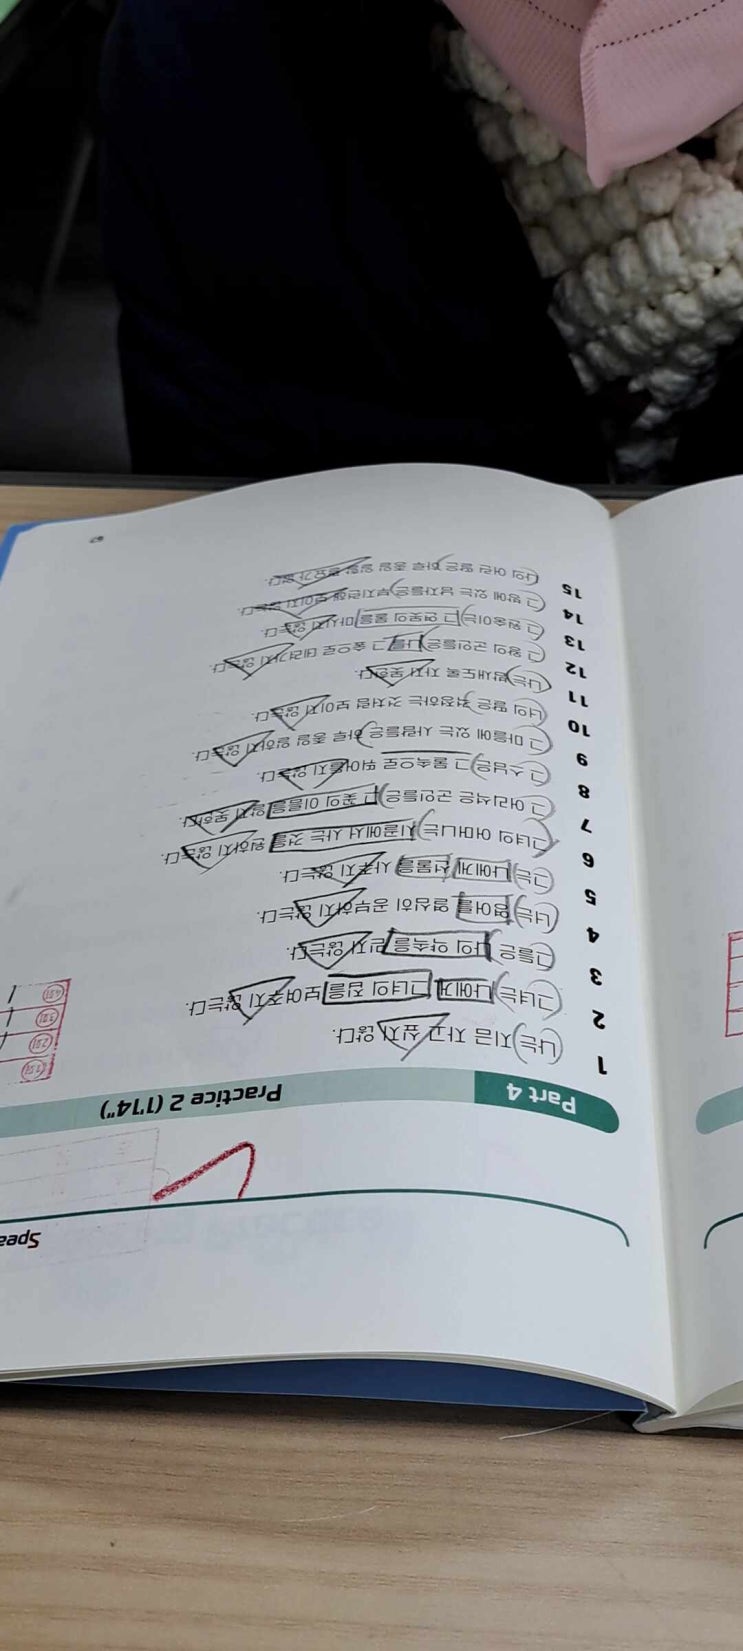 Spea
Part 4 Practice 2 (1'14")
1 나는 지금 자고 싶지 않다.
2 그녀는 나에게 그녀의 집을 보여주지 않는다.
3 그들은 나의 약속을 믿지 않는다.
4 너는 영어를 열심히 공부하지 않는다.
5 그는 나에게 선물을 사주지 않는다.
6 그녀의 어머니는 시골에서 사는 것을 원하지 않는다.
7 그 어리석은 군인들은 그 꽃의 이름을 알지 못한다.
8 그 소남은 그 물속으로 뛰어들지 않는다.
9 그 마을에 있는 사람들은 하루 종일 일하지 않는다.
10 너의 딸은 걱정하는 것처럼 보이지 않는다.
11 나는 밤새도록 자지 못한다.
12 그 왕의 군인들은 나를 그 숲으로 데려가지 않는다.
13 그 원숭이는 그 연못의 물을 마시지 않는다.
14 그 방에 있는 남자는 부지런해 보이지 않는다.
15 너의 어린 딸은 하루 종일 일할 필요가 없다.